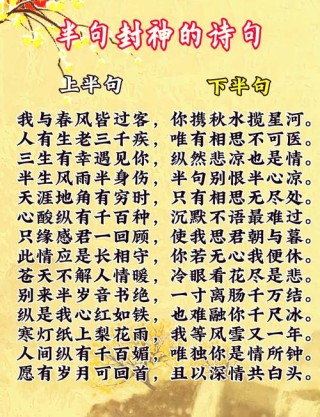 半句封神的诗句
上半句 下半句
我与春风皆过客，你携秋水揽星河。
人有生老三千疾，唯有相思不可医。
三生有幸遇见你，纵然悲凉也是情。
半生风雨半身伤，半句别恨半心凉。
天涯地角有穷时，只有相思无尽处。
心酸纵有千百种，沉默不语最难过。
只缘感君一回顾，使我思君朝与暮。
此情应是长相守，你若无心我便休。
苍天不解人情暖，冷眼看花尽是悲。
别来半岁音书绝，一寸离肠千万结。
纵是我心红如铁，也难融你千尺冰。
寒灯纸上梨花雨，我等风雪又一年。
人间纵有千百媚，唯独你是情所钟。
愿有岁月可回首，且以深情共白头。